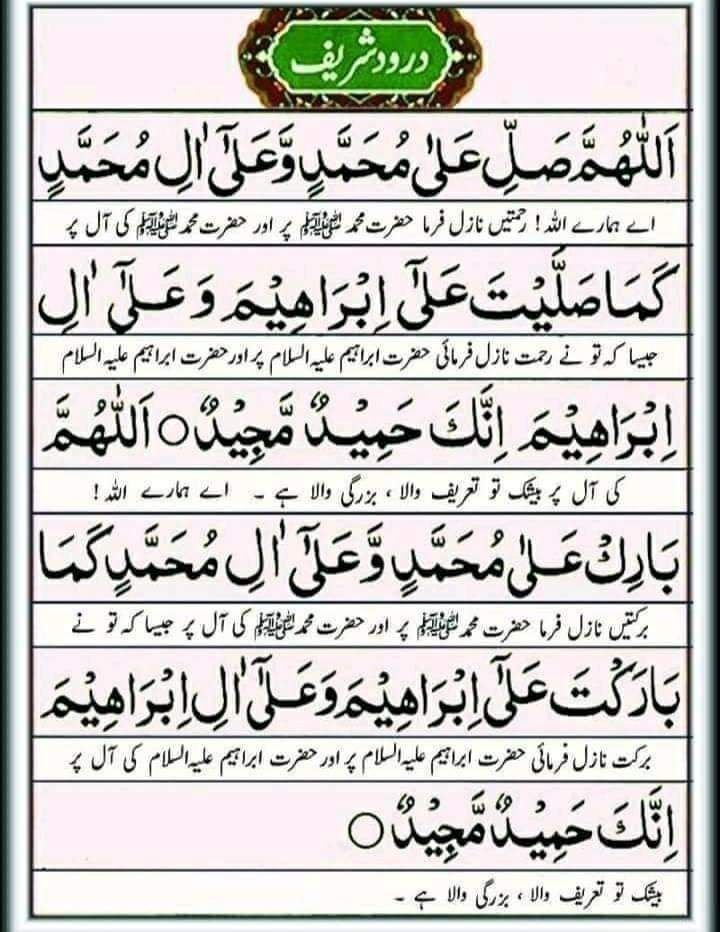 درود شریف
اَللّٰهُمَّ صَلِّ عَلٰى مُحَمَّدٍ وَّعَلٰٓى اٰلِ مُحَمَّدٍ
اے ہمارے اللہ! رحمتیں نازل فرما حضرت محمد ﷺ پر اور حضرت محمد ﷺ کی آل پر
كَمَا صَلَّيْتَ عَلٰٓى اِبْرَاهِيْمَ وَعَلٰٓى اٰلِ
جیسا کہ تو نے رحمت نازل فرمائی حضرت ابراہیم علیہ السلام پر اور حضرت ابراہیم علیہ السلام
اِبْرَاهِيْمَ اِنَّكَ حَمِيْدٌ مَّجِيْدٌ ○ اَللّٰهُمَّ
کی آل پر بیشک تو تعریف والا، بزرگی والا ہے ۔ اے ہمارے اللہ!
بَارِكْ عَلٰى مُحَمَّدٍ وَّعَلٰٓى اٰلِ مُحَمَّدٍ كَمَا
برکتیں نازل فرما حضرت محمد ﷺ پر اور حضرت محمد ﷺ کی آل پر جیسا کہ تو نے
بَارَكْتَ عَلٰٓى اِبْرَاهِيْمَ وَعَلٰٓى اٰلِ اِبْرَاهِيْمَ
برکت نازل فرمائی حضرت ابراہیم علیہ السلام پر اور حضرت ابراہیم علیہ السلام کی آل پر
اِنَّكَ حَمِيْدٌ مَّجِيْدٌ ○
بیشک تو تعریف والا، بزرگی والا ہے ۔